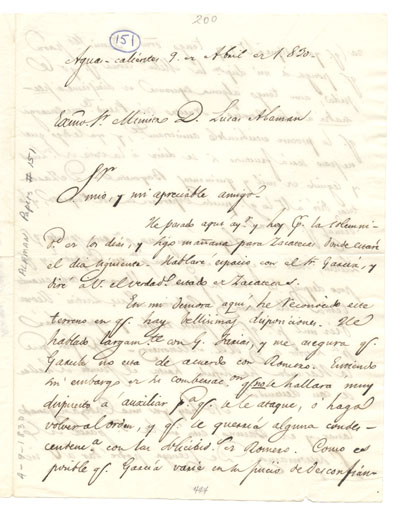 200
151
Agua-calientes 9 de Abril de 1.830.
Exmo. Sr. Ministro D. Lucas Alaman
Sr.
mio, y mi apreciable amigo.
He parado aqui ayr. y hoy pr. la solemni-
d. de los dias, y sigo mañana para Zacatecas donde estaré
el dia siguiente. Hablaré espacio con el Sr. Garcia, y
diré a V. el verdado. estado de Zacatecas.
En mi demora aqui, he reconocido este
terreno en qe. hay bellisimas disposiciones. He
hablado largamte. con G. Macias, y me asegura qe.
Garcia no está de acuerdo con Romero. Entiendo
sin embargo de su conversacon. qe. no se hallara muy
dispuesto a auxiliar pa. qe. se le ataque, o haga
volver al orden, y qe. queria alguna condes-
cendena. con las de Romero. Como es
posible qe. Garcia varie en su juicio de desconfian-
444
ALAMAN Papers # 151